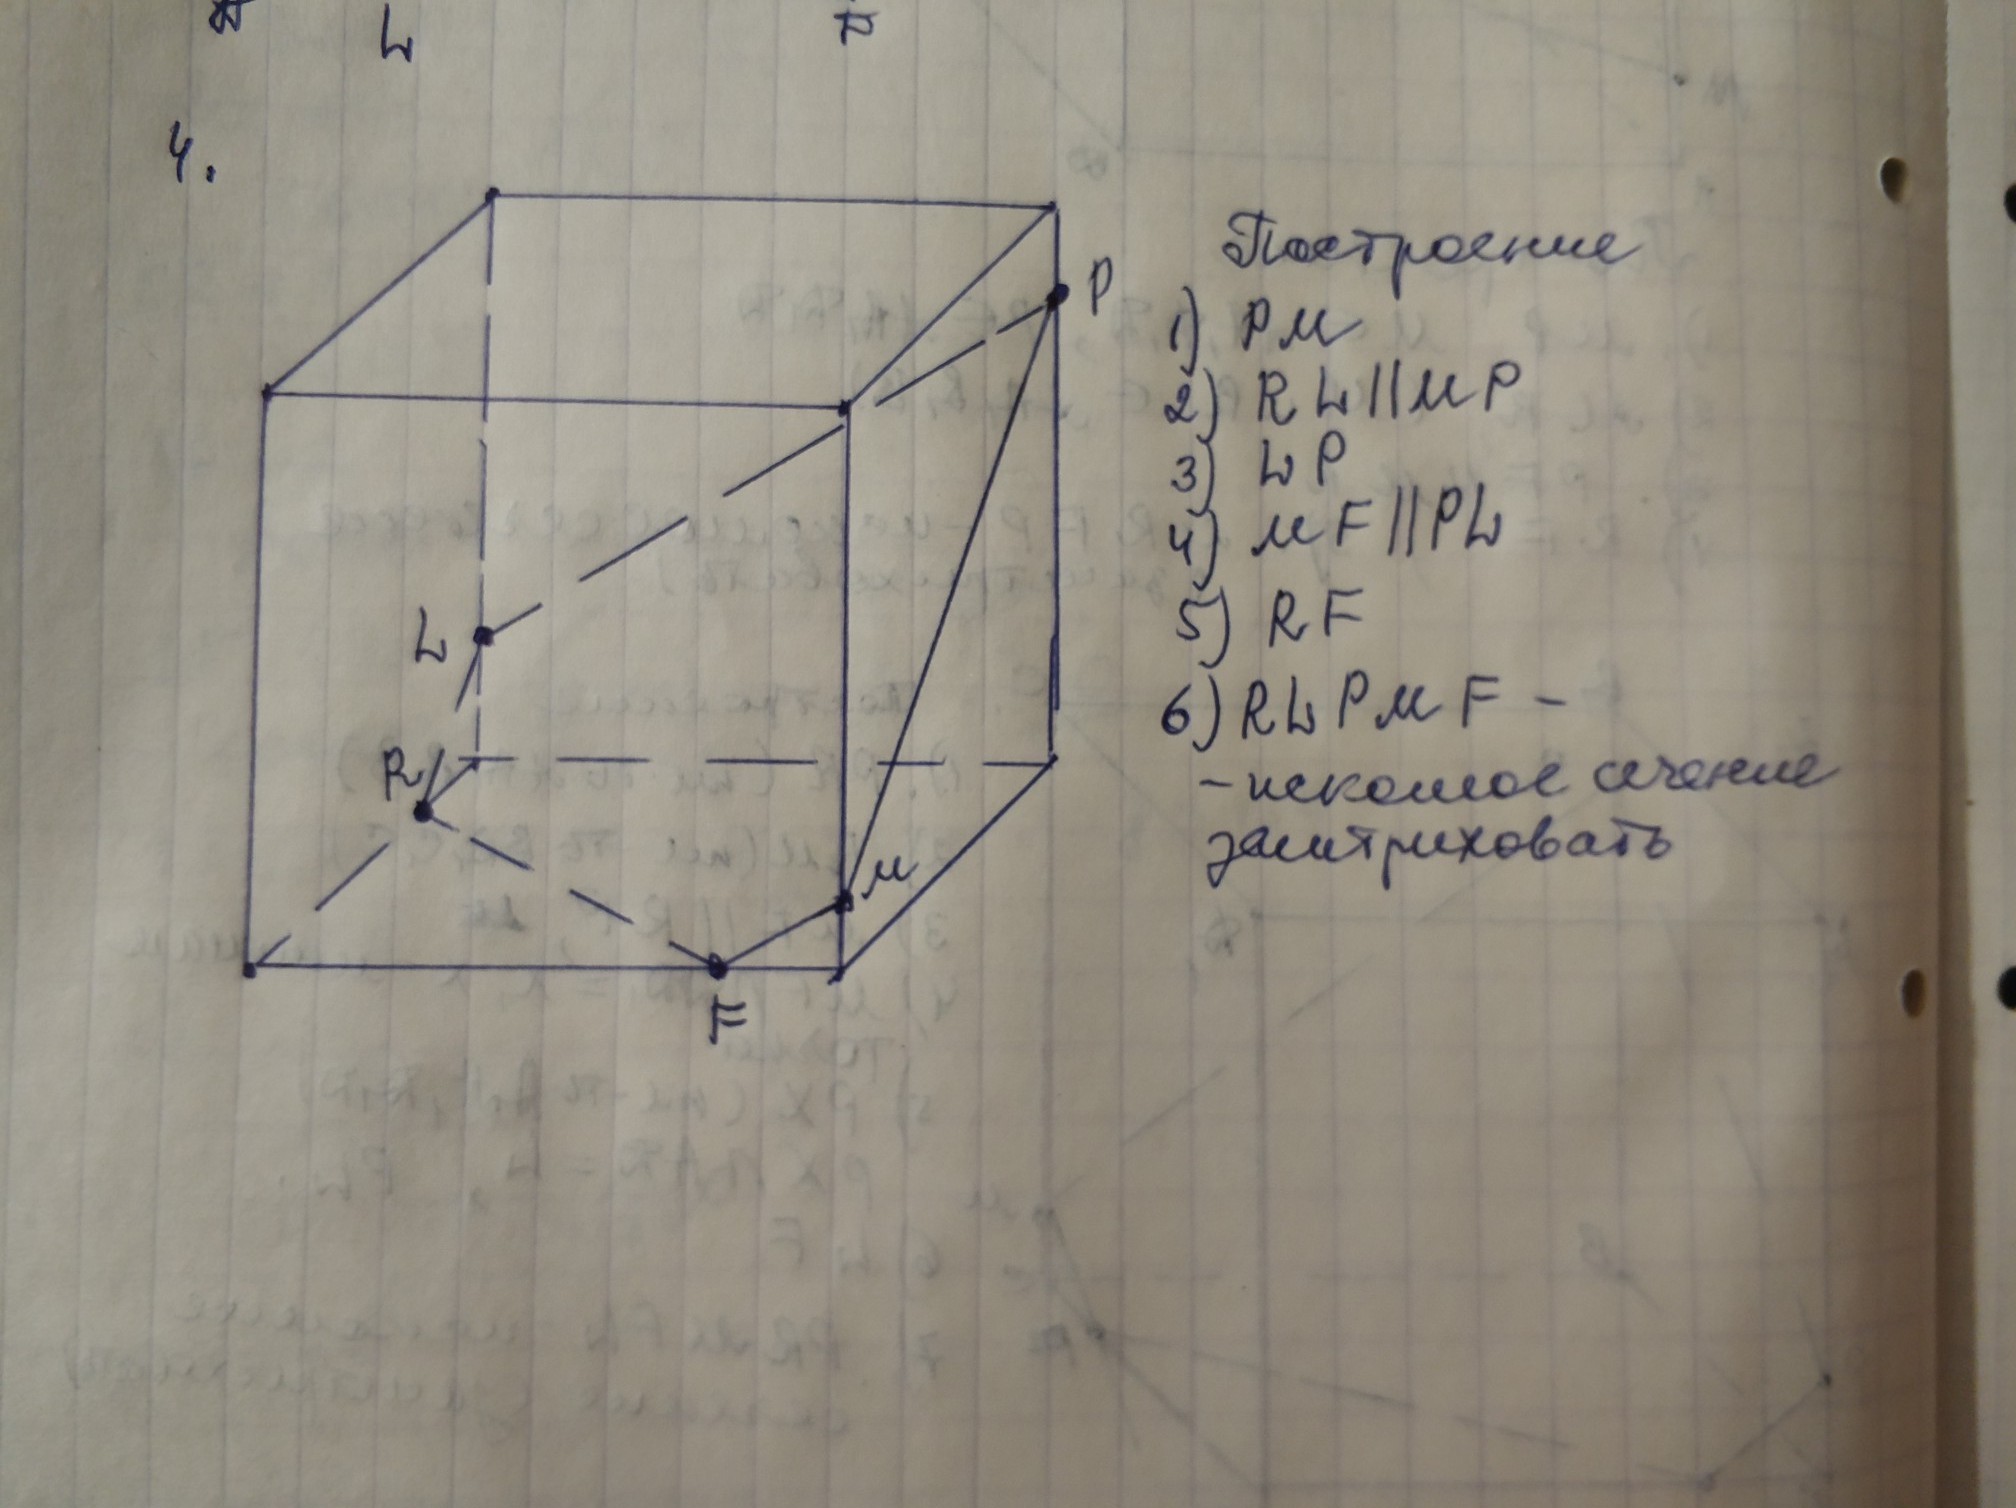 L
F
4.
P
L
R
M
F
Построение
1) PM
2) RL||MP
3) LP
4) MF||PL
5) RF
6) RLPMF –
– искомое сечение
заштриховать